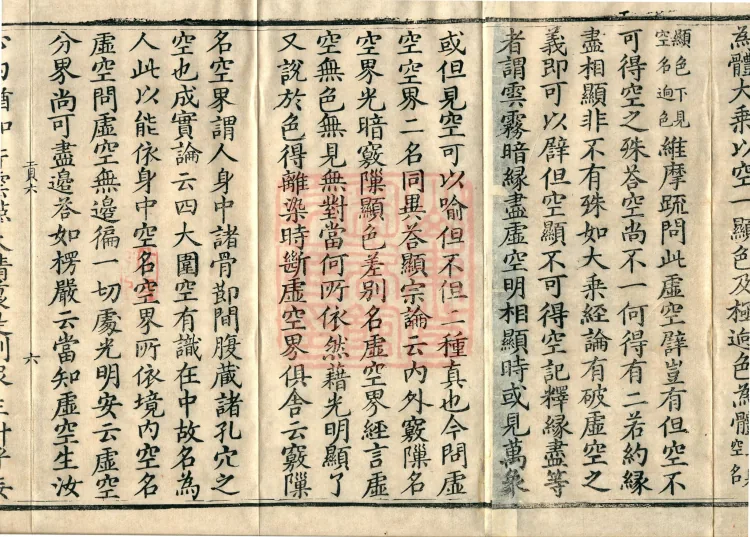 為體大乗以空一顯色及極逈色為體空名
顯色下見空名逈色維摩疏問此虛空譬豈有但空不
可得空之殊荅空尚不一何得有二若約緣
盡相顯非不有殊如大乗經論有破虛空之
義即可以辟但空顯不可得空記釋緣盡等
者謂雲霧暗緣盡虛空明相顯時或見萬象
或但見空可以喻但不但二種真也今問虛
空空界二名同異荅顯宗論云内外竅隟名
空界光暗竅隟顯色差別名虛空界經言虛
空無色無見無對當何所依然藉光明顯了
又說於色得離染時斷虛空界俱舍云竅隟
名空界謂人身中諸骨節間腹藏諸孔穴之
空也成實論云四大圍空有識在中故名為
人此以能依身中空名空界所依境内空名
虛空問虛空無邊徧一切處光明安云虛空
分界尚可盡邊荅如楞嚴云當知虛空生汝
心内猶如片雲
六